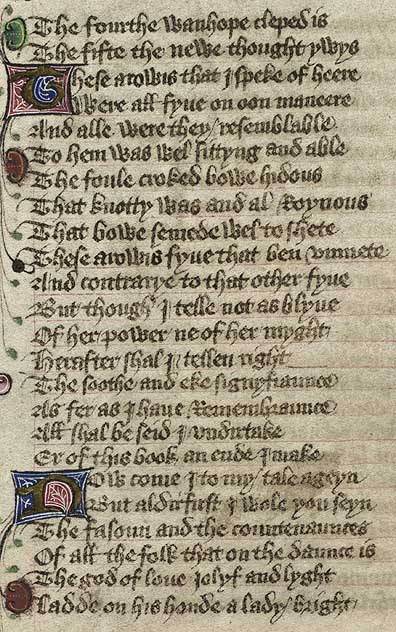 The fourthe wanhope cleped is
The fifte the newe thought ywys
These arowis that I speke of heere
Were all fyue on oon maneere
And alle were they resemblable
To hem was wel sittyng and able
The foule croked bowe hidous
That knotty was and al Roynous
That bowe semede wel to shete
These arowis fyue that ben vnmete
And contrarye to that other fyue
But though I telle not as blyue
Of her power ne of her myght
Herafter shal I tellen right
The soothe and eke signyfiaunce
As fer as I haue Remembraunce
All shal be seid I vndirtake
Er of this book an ende I make
Now come I to my tale ageyn
But aldirfirst I wole you seyn
The fasoun and the countenaunces
Of all the folk that on the daunce is
The god of loue iolyf and lyght
Ladde on his honde a lady bright